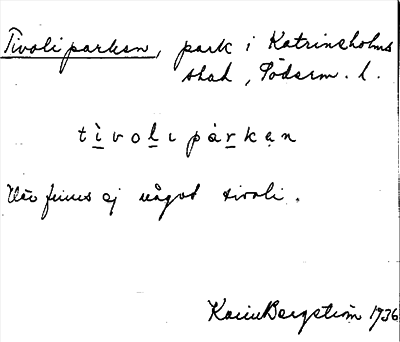 Tivoliparken, park i Katrineholms
stad, Söderm. l.
tìvolıpárkən
Där finns ej något tivoli.
Karin Bergström 1936